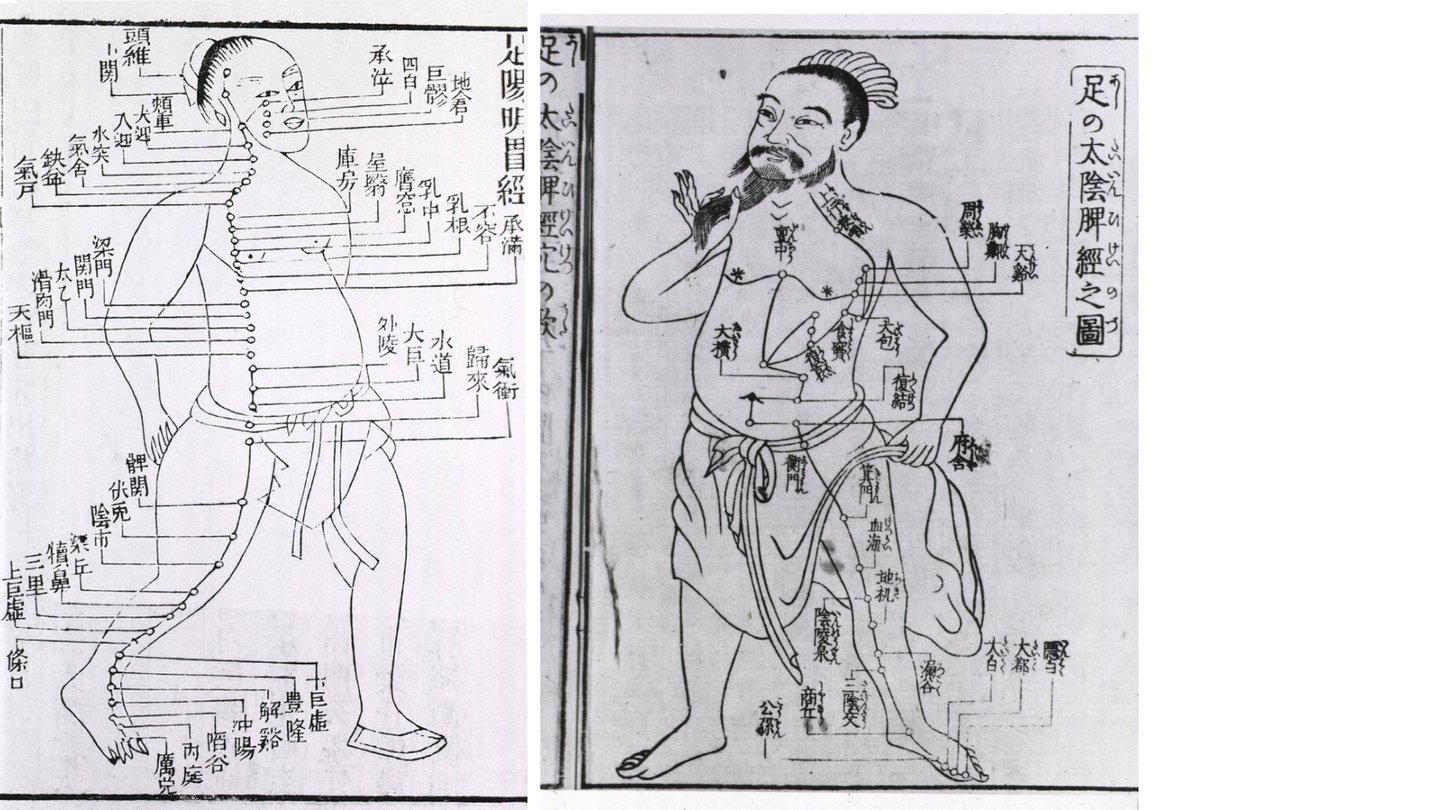 足陽明胃經
頭維
頰車
大迎
水突
氣舍
缺盆
氣戸
承泣
四白
巨髎
地倉
庫房
屋翳
膺窓
乳中
乳根
不容
承滿
梁門
関門
太乙
滑肉門
天樞
外陵
大巨
水道
歸來
氣衝
髀関
伏兎
陰市
梁丘
犢鼻
三里
上巨虛
條口
豊隆
解谿
冲陽
陷谷
内庭
厲兌
足の太陰脾經之圖
あしのたいいんひけいのづ
周榮
胸鄕
天谿
大包
食竇
大橫
腹結
府舎
衝門
箕門
血海
地机
陰陵泉
漏谷
三陰交
商丘
公孫
太白
大都
隱白